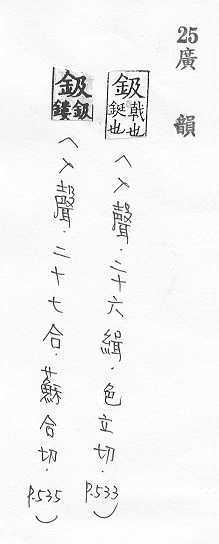 25廣韻
鈒戟也鋋也(入聲.二十六緝.色立切.P.533)
鈒鈒鏤(入聲.二十七合.蘇合切.P.535)